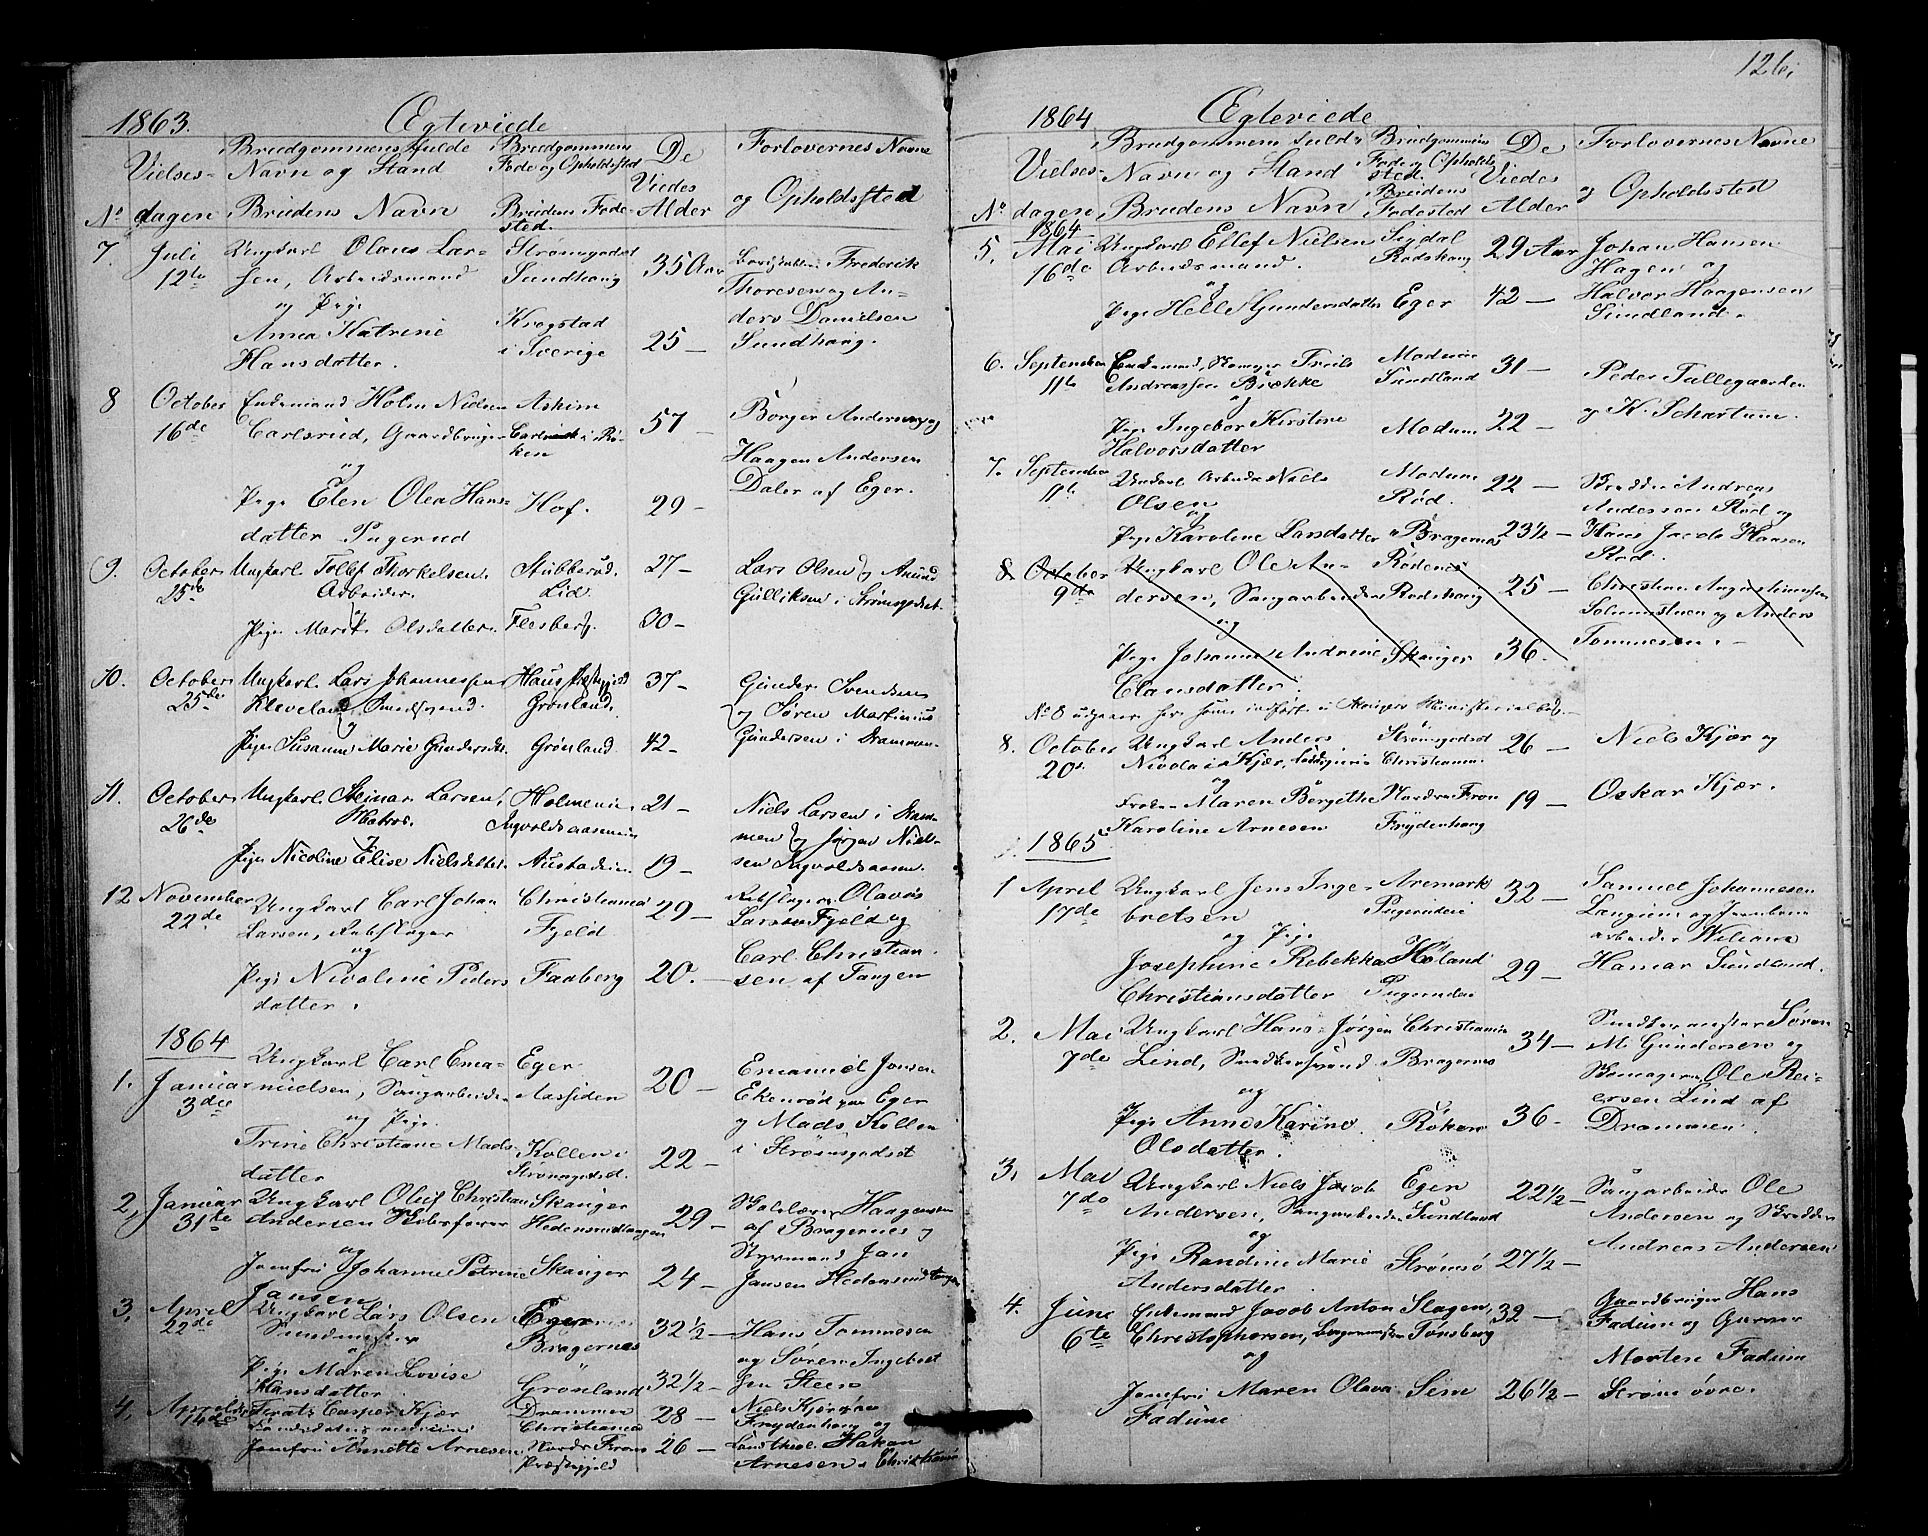 1863.
Ægteviede
No
Vielses-
dagen
Brudgommens fulde
Navn og Stand
Brudens Navn
Brudgommens
Føde og Opholdsted
Brudens Føde-
sted.
De
Viedes
Alder
Forlovernes Navne
og Opholdssted
7
Juli
12te
Ungkarl Olaus Lar-
sen, Arbeidsmand
og Pige
Anna Katrine
Hansdatter.
Strømsgodset
Sundhaug
Krogstad
i Sverige
35 Aar
25 —
Frederik
Thoresen og An-
ders Danielsen
Sundhaug.
8
October
16de
Enkemand Holm Nielsen
Carlsrud, Gaardbruger
og
Pige Elen Olea Hans-
datter Pugerud
Askim
Carlsrud i Rø-
ken
Hof.
57 —
29 —
Børger Andersen og
Haagen Andersen
Daler af Eger.
9.
October
25de
Ungkarl Tollef Thorkelsen.
Arbeider.
Pige Marie Olsdatter.
Stubberud.
Lid.
Flesberg.
27 —
30 —
Lars Olsen og Anund
Gulliksen i Strømsgodset.
10.
October
25de
Ungkarl Lars Johannessen
Kleveland Smedsvend.
og
Pige Susanne Marie Gundersdtr.
Haus Præstegjeld
Grønland.
Grønland.
37 —
42 —
Gunder Svendsen
og Søren Martinius
Gundersen i Drammen.
11.
October
26de
Ungkarl Steinar Larsen,
Matros.
Pige Nicoline Elise Nielsdatter.
Holmen
Ingvoldsaasen
Austad
21 —
19 —
Niels Larsen i Dram-
men og Jørgen Niel-
sen Ingvoldsaasen.
12
November
22de
Ungkarl Carl Johan
Larsen, Rebslager
og
Pige Nicoline Peders
datter.
Christiania
Fjeld
Faaberg
29 —
20. —
Rebslager Olavus
Larsen Fjeld og
Carl Christian-
sen af Tangen
1864
1.
Januar
3die
Ungkarl Carl Ema-
nuelsen, Saugarbeider
og Pige
Trine Christiane Mads
datter
Eger
Aassiden
Kollen i
Strømsgodset.
20 —
22 —
Emanuel Jonsen
Ekenrød paa Eger
og Mads Kollen
i Strømsgodset
2,
Januar
31te
Ungkarl Oluf Christian
Andersen Skibsfører
og
Jomfru Johanne Petrine
Jansen
Skauger
Hedensrudtangen
Skauger
29 —
24 —
Skolelærer Haagensen
af Bragernes og
Styrmand Jan
Jansen Hedensrudtangen
3,
April
22de
Ungkarl Lars Olsen
Smedmester
og
Pige Maren Lovise
Hansdatter
Eger
Bragernes
Grønland
32 1/2 —
32 1/2 —
Hans Tommesen
og Søren Ingebret
sen Steen
4,
April
14de
Casper Kjær
Jomfru Annette Arnesen
Drammen
Christiania
Nordre Frons
Præstegjeld
28 —
26 —
Niels Kjær
Frydenhaug og
Hakan
Arnesen Christiania
126,
1864
Ægteviede
No
Vielses-
dagen
Brudgommens fulde
Navn og Stand
Brudens Navn
Brudgommens
Føde og Opholds
sted.
Brudens
Fødested
De
Viedes
Alder
Forlovernes Navne
og Opholdssted
1864
5.
Mai
16de
Ungkarl Ellef Nielsen
Arbeidsmand.
og
Pige Helle Gundersdatter
Sigdal
Rødshaug
Eger
29 Aar
42 —
Johan Hansen
Hagen og
Halvor Haagensen
Sundland.
6.
September
11te
Enkemand, Skomager Truls
Andreassen Brække
og
Pige Ingebor Kirstine
Halvorsdatter
Modum
Sundland
Modum
31 —
22 —
Peder Tallegaarden
og K. Schartum.
7.
September
11te
Ungkarl Arbeider Niels
Olsen
og
Pige Karoline Larsdatter
Modum
Rød.
Bragernes
22 —
23 1/2 —
Skrædder Andreas
Andersen Rød og
Hans Jacob Hansen
Rød.
8
October
9de
Ungkarl Ole An-
dersen, Saugarbeider
og
Pige Johanne Andrine
Clausdatter.
Rødenes
Rødshaug
Skauger
25 —
36.
Christian Augustinussen
og Anders
Tommesen. —
No 8 udgaaer her, som indført i Skaugers Ministerialbog. —
8.
October
20de
Ungkarl Anders
Nicolai Kjær,
og
Frøken Maren Bergithe
Karoline Arnesen
Strømsgodset
Christiania
Nordre Fron
Frydenhaug
26 —
19 —
Niels Kjær og
Oskar Kjær.
1865
1
April
17de
Ungkarl Jens Inge-
bretsen
og Pige
Josephine Rebekka
Christiansdatter
Aremark
Pugerudeie
Høland
Pugerudeie
32 —
29 —
Samuel Johannesen
Langum og Jernbane
arbeider Wiliam
Hamar Sundland.
2.
Mai
7de
Ungkarl Hans Jørgen
Lind, Snedkersvend
og
Pige Anne Karine
Olsdatter.
Christiania
Bragernes
Røken
34 —
36 —
Snedkermester Søren
M. Gundersen og
Skomager Ole Rei-
ersen Lind af
Drammen.
3.
Mai
7de
Ungkarl Niels Jacob
Andersen, Saugarbeider
og
Pige Randine Marie
Andersdatter.
Eger
Sundland
Strømsø
22 1/2 —
27 1/2 —
Saugarbeider Ole
Andersen og Skrædder
Andreas Andersen
4.
June
6te
Enkemand Jacob Anton
Christophersen,
og
Jomfru Maren Olava
Fadum
Slagen,
Tønsberg
Sem
32 —
26 1/2 —
Gaardbruger Hans
Fadum og Garver
Morten Fadum
Strøm øvre.